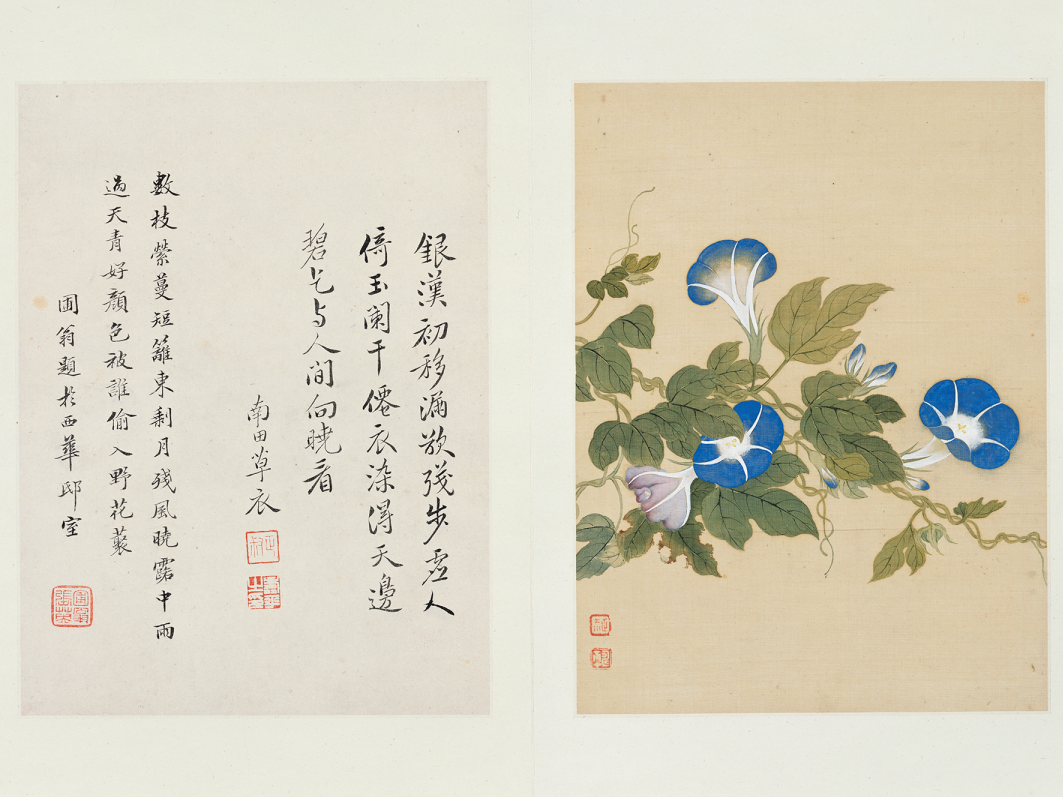 銀漢初移漏欲殘步虛人
倚玉闌干僊衣染得天邊
碧乞与人間向曉看
南田草衣
數枝縈蔓短籬東剩月殘風曉露中雨
過天青好顏色被誰偷入野花叢
圃翁題於西華邸室